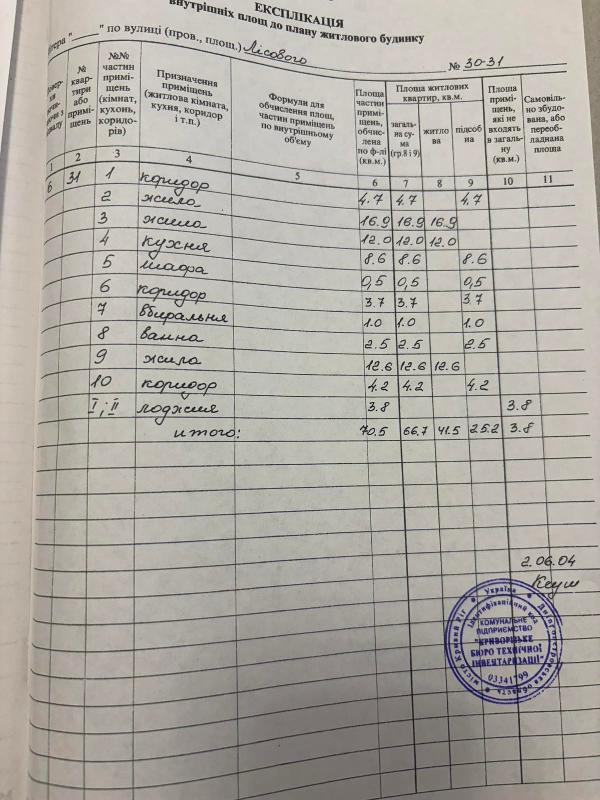 ЕКСПЛІКАЦІЯ
внутрішніх площ до плану житлового будинку
"_____" по вулиці (пров., площ.) Лісового № 30-31
№ квар- тири або примі- щень
№№ частин примі- щень (кімнат, кухонь, коридо- рів)
Призначення приміщень (житлова кімната, кухня, коридор і т.п.)
Формули для обчислення площ, частин приміщень по внутрішньому об'єму
Площа частин примі- щень, обчис- лена по ф-лі (кв.м.)
Площа житлових квартир, кв.м.
загаль- на су- ма (гр.8 і 9)
житло ва
підсоб на
Площа примі- щень, які не входять в загаль- ну (кв.м.)
Самовіль- но збудо- вана, або переоб- ладнана площа
1 2 3 4 5 6 7 8 9 10 11
6 31 1 коридор 4.7 4.7 4.7
2 жила 16.9 16.9 16.9
3 жила 12.0 12.0 12.0
4 кухня 8.6 8.6 8.6
5 шафа 0,5 0,5 0,5
6 коридор 3.7 3.7 3.7
7 вбиральня 1.0 1.0 1.0
8 ванна 2.5 2.5 2.5
9 жила 12.6 12.6 12.6
10 коридор 4.2 4.2 4.2
I; II лоджия 3.8 3.8
итого: 70.5 66.7 41.5 25.2 3.8
2.06.04
Україна Дніпропетровська область місто Кривий Ріг
Ідентифікаційний код
КОМУНАЛЬНЕ
ПІДПРИЄМСТВО
"КРИВОРІЗЬКЕ
БЮРО ТЕХНІЧНОЇ
ІНВЕНТАРИЗАЦІЇ"
03341799